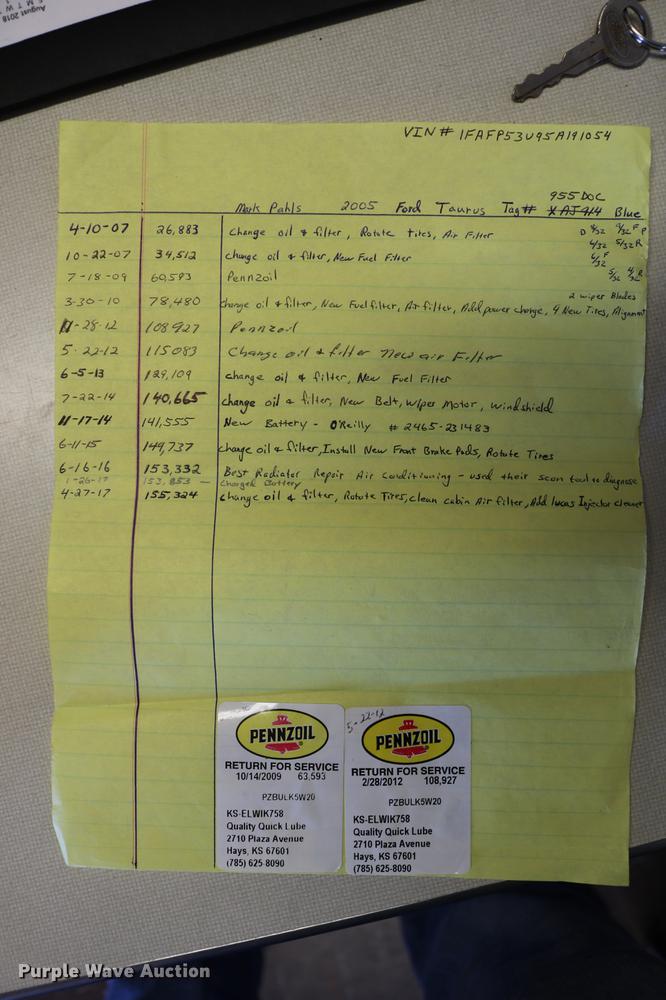 August 2018
S M T W
VIN # 1FAFP53U95A191054
955 DOC
Mark Pahls 2005 Ford Taurus Tag# XAJ914 Blue
4-10-07 26,883 Change oil & filter, Rotate Tires, Air Filter
10-22-07 34,512 Change oil & filter, New Fuel Filter
7-18-09 60,593 Pennzoil
2 wiper Blades
3-30-10 78,480 Change oil & filter, New Fuel filter, Air filter, Add power charge, 4 New Tires, Alignment
-28-12 108927 Pennzoil
5-22-12 115083 Change oil & filter New air Filter
6-5-13 129,109 change oil & filter, New Fuel Filter
7-22-14 140,665 change oil & filter, New Belt, Wiper Motor, windshield
11-17-14 141,555 New Battery - O'Reilly # 2465-231483
6-11-15 149,737 change oil & filter, Install New Front Brake Pads, Rotate Tires
6-16-16 153,332 Best Radiator Repair Air Conditioning - used their scan tool to diagnose
1-26-17 153,853 — Charged Battery
4-27-17 155,324 change oil & filter, Rotate Tires, clean cabin Air filter, Add Lucas Injector Cleaner
PENNZOIL
RETURN FOR SERVICE
10/14/2009 63,593
PZBULK5W20
KS-ELWIK758
Quality Quick Lube
2710 Plaza Avenue
Hays, KS 67601
(785) 625-8090
5-22-12
PENNZOIL
RETURN FOR SERVICE
2/28/2012 108,927
PZBULK5W20
KS-ELWIK758
Quality Quick Lube
2710 Plaza Avenue
Hays, KS 67601
(785) 625-8090
Purple Wave Auction